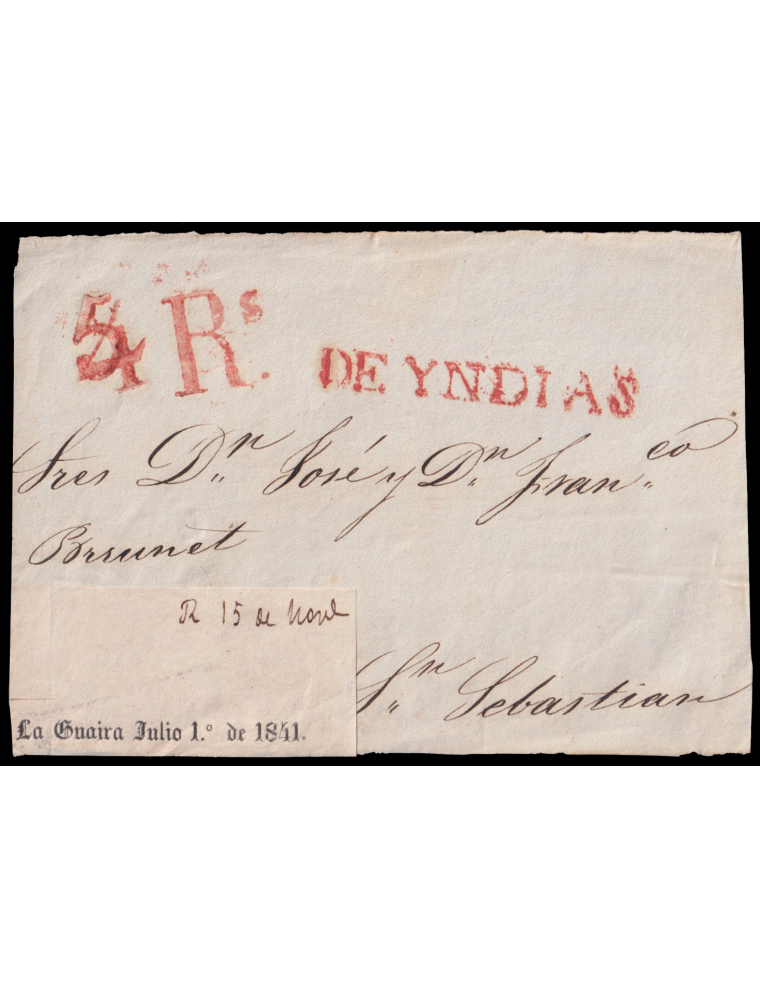 Rs. DE YNDIAS
Sres Dn José y Dn Franco
Brunet
R 15 de Nove
Sn Sebastian
La Guaira Julio 1.° de 1841.